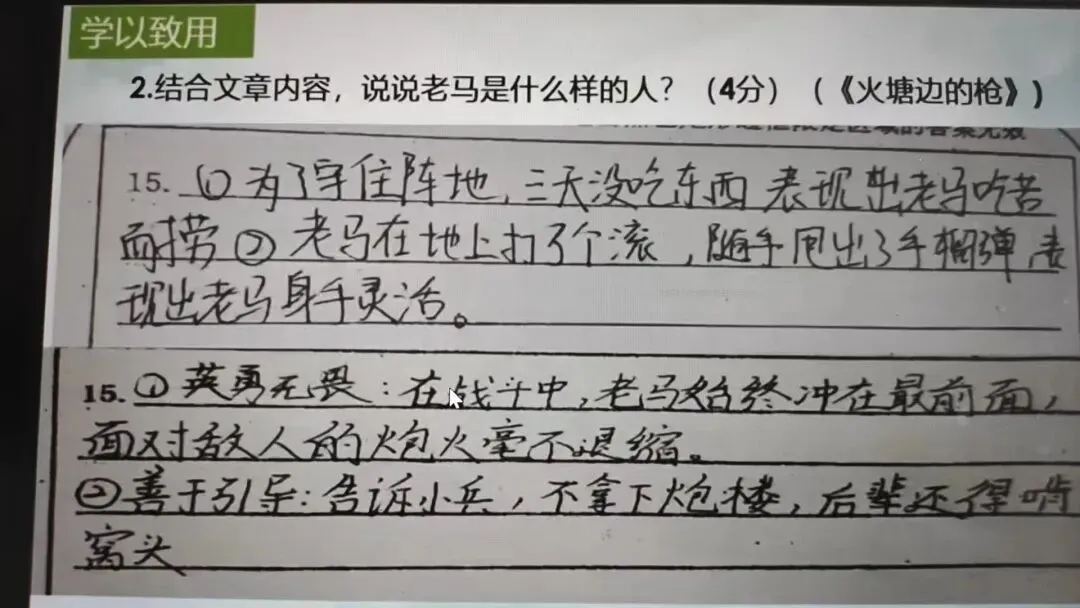 学以致用
2.结合文章内容，说说老马是什么样的人？（4分）（《火塘边的枪》)
15. ①为了守住阵地，三天没吃东西 表现出老马吃苦
耐捞 ② 老马在地上打了个滚，随手甩出了手榴弹，表
现出老马身手灵活。
15. ①英勇无畏：在战斗中，老马始终冲在最前面，
面对敌人的炮火毫不退缩。
②善于引导：告诉小兵，不拿下炮楼，后辈还得啃
窝头